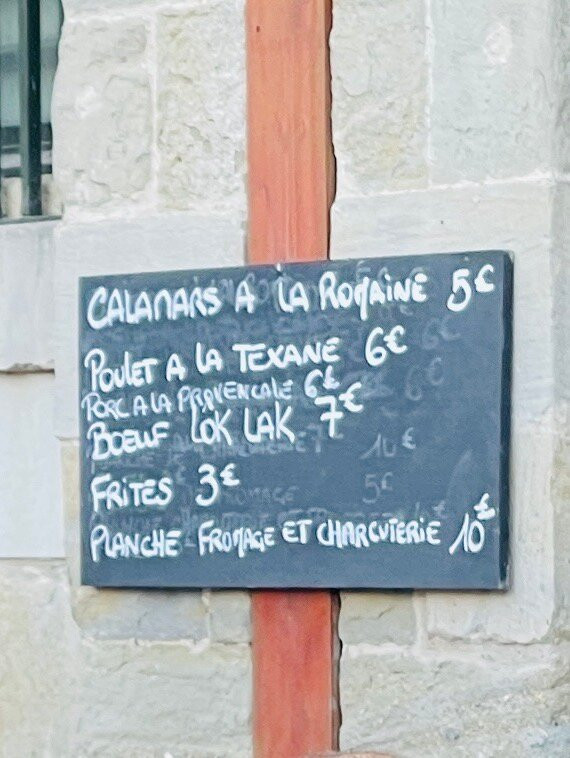 CALAMARS A LA ROMAINE 5€
POULET A LA TEXANE 6€
PORC A LA PROVENCALE 6€
BOEUF LOK LAK 7€
FRITES 3€
PLANCHE FROMAGE ET CHARCUTERIE 10€